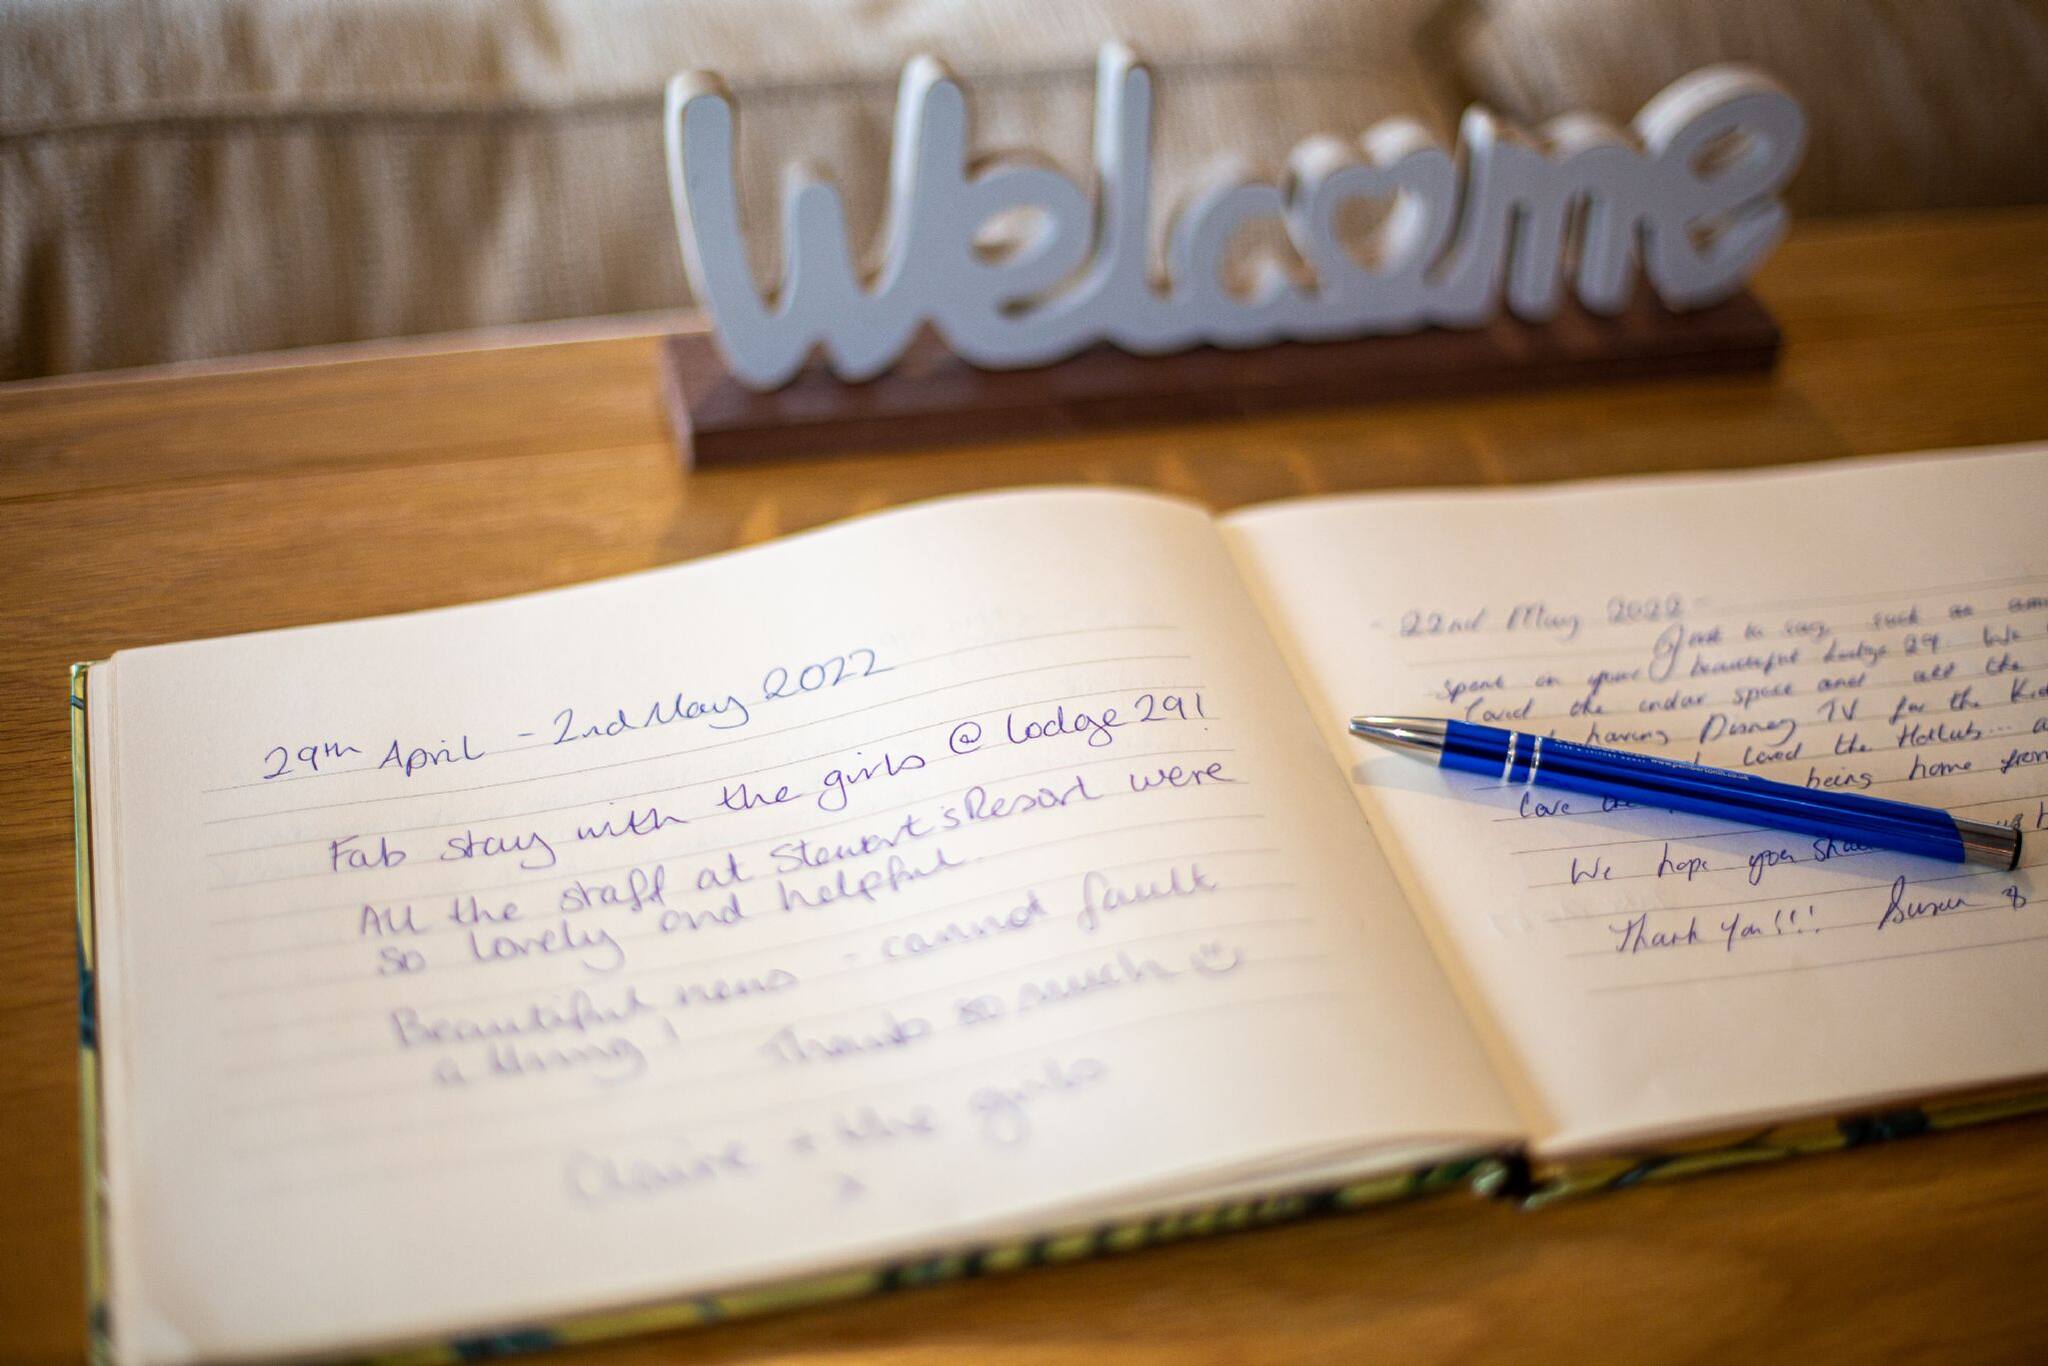 Welcome
29th April - 2nd May 2022
Fab stay with the girls @ Lodge 29!
All the staff at Stewart's Resort were
so lovely and helpful.
Beautiful views - cannot fault
a thing! Thanks so much
Claire + the girls
x
- 22nd May 2022 -
Just to say, such an
spent in your beautiful Lodge 29. We
Loved the indoor space and all the
having Disney TV for the
Loved the Hottub...
Love being home from
We hope you
Thank You!!! Susan &